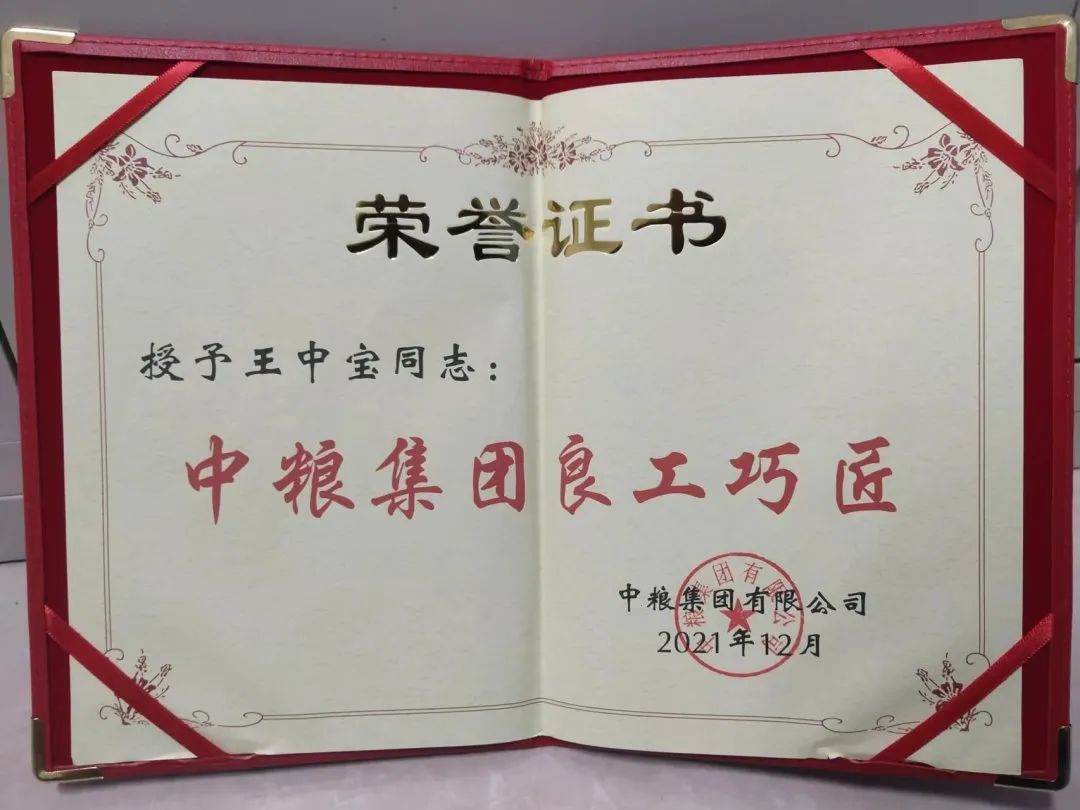 荣誉证书
授予王中宝同志：
中粮集团良工巧匠
中粮集团有限公司
2021年12月
中粮集团有限公司